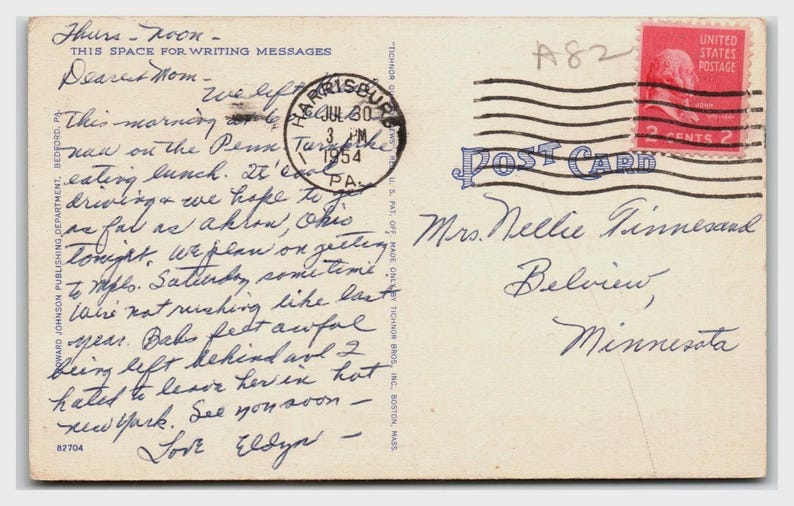 Thurs - Noon -
THIS SPACE FOR WRITING MESSAGES
Dearest Mom -
We left
this morning
now on the Penn Turnpike
eating lunch. It's cool
driving & we hope to get
as far as Akron, Ohio
tonight. We plan on getting
to Mpls. Saturday sometime
We're not rushing like last
year. Babs feel awful
being left behind and I
hated to leave her in hot
new York. See you soon -
Love Eldyn -
82704
HOWARD JOHNSON PUBLISHING DEPARTMENT, BEDFORD, PA.
"TICHNOR QUALITY REG. U. S. PAT. OFF. MADE ONLY BY TICHNOR BROS., INC., BOSTON, MASS.
HARRISBURG
JUL 30
3 PM
1954
PA.
1
A82
UNITED
STATES
POSTAGE
JOHN
ADAMS
2 CENTS 2
POST CARD
Mrs. Nellie Tinnesand
Belview,
Minnesota